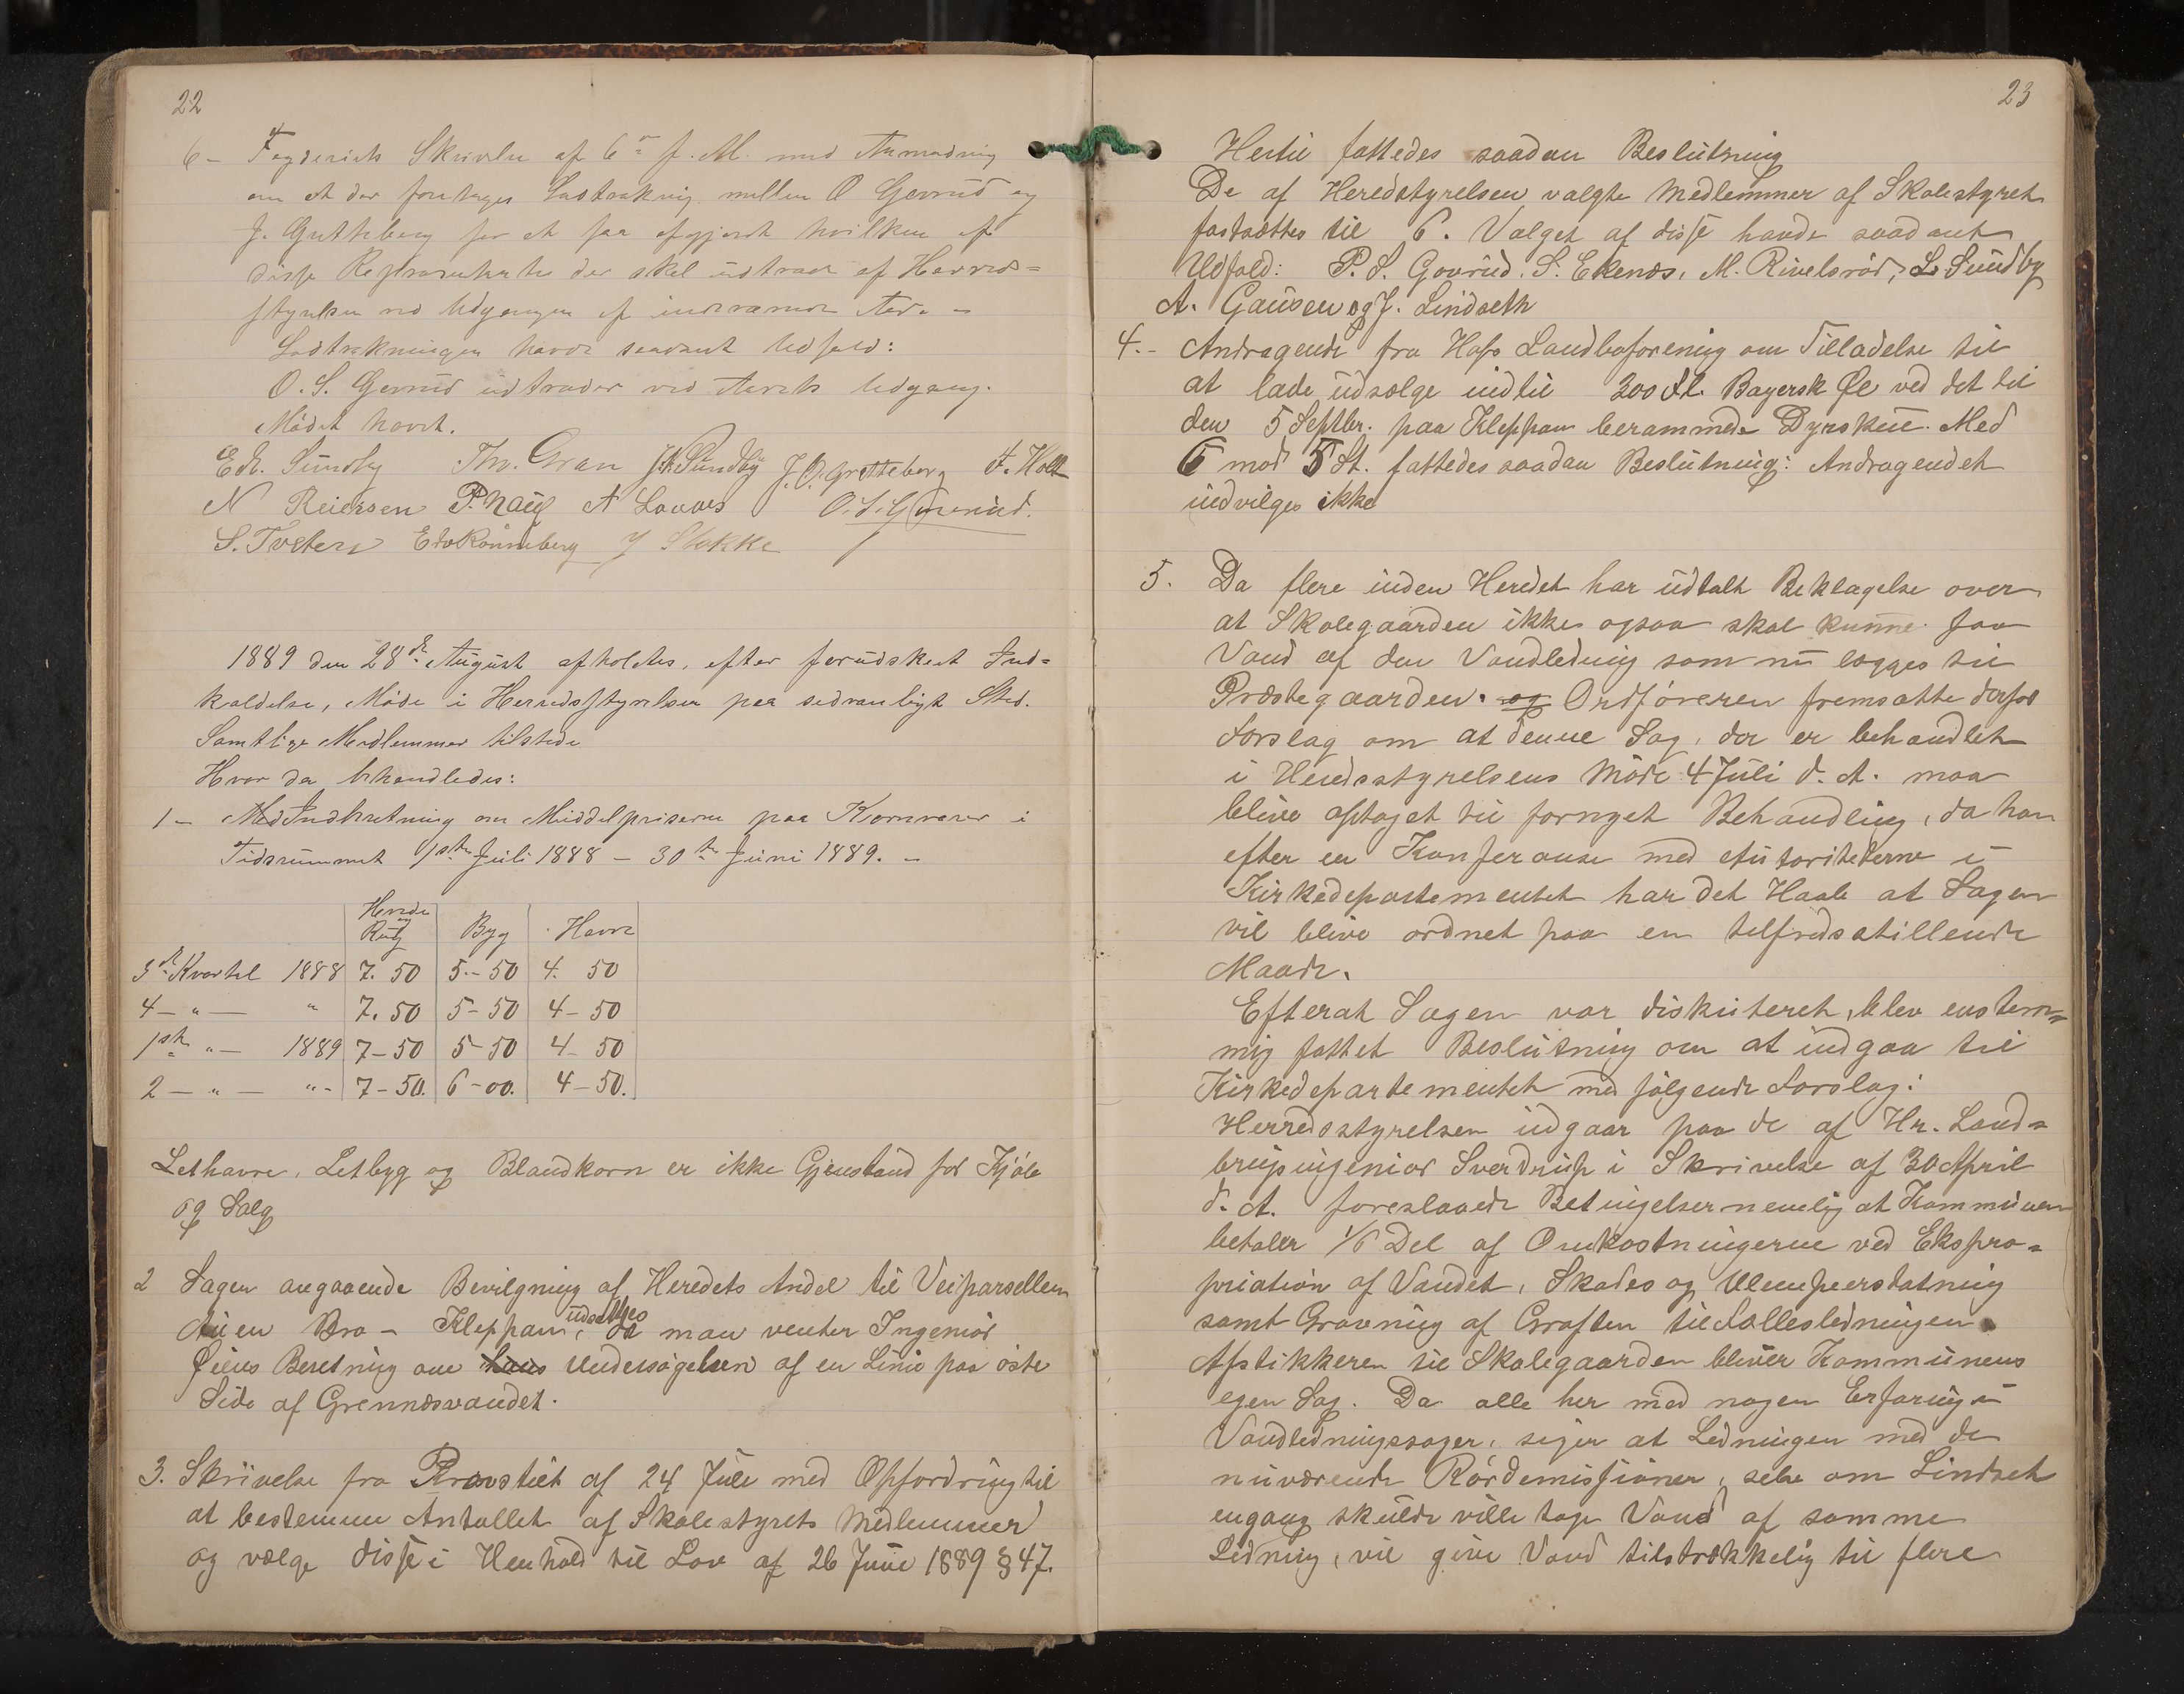 22
6 – Fogderiets Skrivelse af 6te f. M. med Anmodning
om at der foretages Lodtrækning mellem O Gevrud og
J. Grytteberg for at faa afgjordt hvilken af
disse Repræsentanter der skal udtræde af Herreds=
styrelsen ved Udgangen af indeværende Aar. –
Lodtrækningen havde saadant Udfald:
O. S. Gevrud udtræder ved Aarets Udgang.
Mödet hævet.
Edv. Sundby Thv. Gran J. Sundby J. O. Grytteberg F. Holt
N Reiersen P. Haug A Lovaas O. S. Gjevrud.
S. Tveten Edv Rönneberg J Stokke
1889 den 28de August afholdtes, efter forudskeet Ind=
kaldelse, Möde i Herredsstyrelsen paa sedvanligt Sted.
Samtlige Medlemmer tilstede
Hvor da behandledes:
1 – Indberetning om Middelpriserne paa Kornvarer i
Tidsrummet 1ste Juli 1888 – 30te Juni 1889. –
Hvede og Rug Byg Havre
3die Kvartal 1888 7. 50 5 – 50 4. 50
4 – " – " 7. 50 5 – 50 4 – 50
1ste " – 1889 7 – 50 5 – 50 4 – 50
2 – " – " – 7 – 50. 6 – 00. 4 – 50.
Lethavre, Letbyg og Blandkorn er ikke Gjenstand for Kjöb
og Salg
2 Sagen angaaende Bevilgning af Heredets Andel til Veiparsellen
Aaen Bro – Kleppan, udsattes da man venter Ingeniör
Öiens Beretning om hans Undersögelsen af en Linie paa östre
Side af Grennesvandet.
3. Skrivelse fra Provstiet af 24 Juli med Opfordring til
at bestemme Antallet af Skolestyrets Medlemmer
og vælge disse i Henhold til Lov af 26 Juni 1889 § 47.
23
Hertil fattedes saadan Beslutning
De af Heredstyrelsen valgte Medlemmer af Skolestyret
fastsættes til 6. Valget af disse havde saadant
Udfald: P. S. Govrud, S. Ekenæs, M. Rivelsröd, L. Sundby
A. Gausen og J. Lindseth
4. – Andragende fra Hofs Landboforening om Tilladelse til
at lade udsælge indtil 300 Fl. Bayersk Øl ved det til
den 5 Septbr. paa Kleppan berammede Dyrskue. Med
6 mod 5 St. fattedes saadan Beslutning: Andragendet
indvilges ikke
5. Da flere inden Heredet har udtalt Beklagelse over
at Skolegaarden ikke ogsaa skal kunne faa
Vand af den Vandledning som nu lægges til
Præstegaarden. og Ordföreren fremsatte derfor
Forslag om at denne Sag, der er behandlet
i Heredsstyrelsens Möde 4 Juli d. A. maa
blive optaget til fornyet Behandling, da han
efter en Konferanse med Autoriteterne i
Kirkedepartementet har det Haab at Sagen
vil blive ordnet paa en tilfredsstillende
Maade.
Efterat Sagen var diskuteret, blev enstem=
mig fattet Beslutning om at indgaa til
Kirkedepartementet med fölgende Forslag:
Herredsstyrelsen indgaar paa de af Hr. Land=
brugsingeniör Sverdrup i Skrivelse af 30 April
d. A. foreslaaede Betingelser nemlig at Kommunen
betaler 1/6 Del af Omkostningerne ved Ekspro=
priation af Vandet, Skades og Ulempeerstatning
samt Gravning af Gröften til Fællesledningen.
Afstikkeren til Skolegaarden bliver Kommunens
egen Sag. Da alle her med nogen Erfaring i
Vandledningssager, siger at Ledningen med de
nuværende Rördemissioner, selv om Lindseth
engang skulde ville tage Vand af samme
Ledning, vil give Vand tilstrækkelig til flere